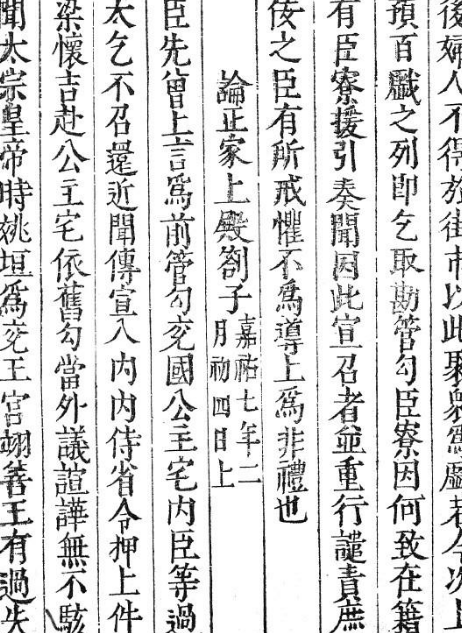 後婦人不得於街市以此聚衆爲戲若今次上
預百戲之列即乞取勘管勾臣寮因何致在籍
有臣寮援引奏聞因此宣召者並重行譴責庶
佞之臣有所戒懼不爲導上爲非禮也
論正家上殿劄子 嘉祐七年二
月初四日上
臣先曾上言爲前管勾兗國公主宅内臣等過
太乞不召還近聞傳宣入内内侍省令押上件
梁懷吉赴公主宅依舊勾當外議諠譁無不駭
聞太宗皇帝時姚垣爲兗王宮翊善王有過失